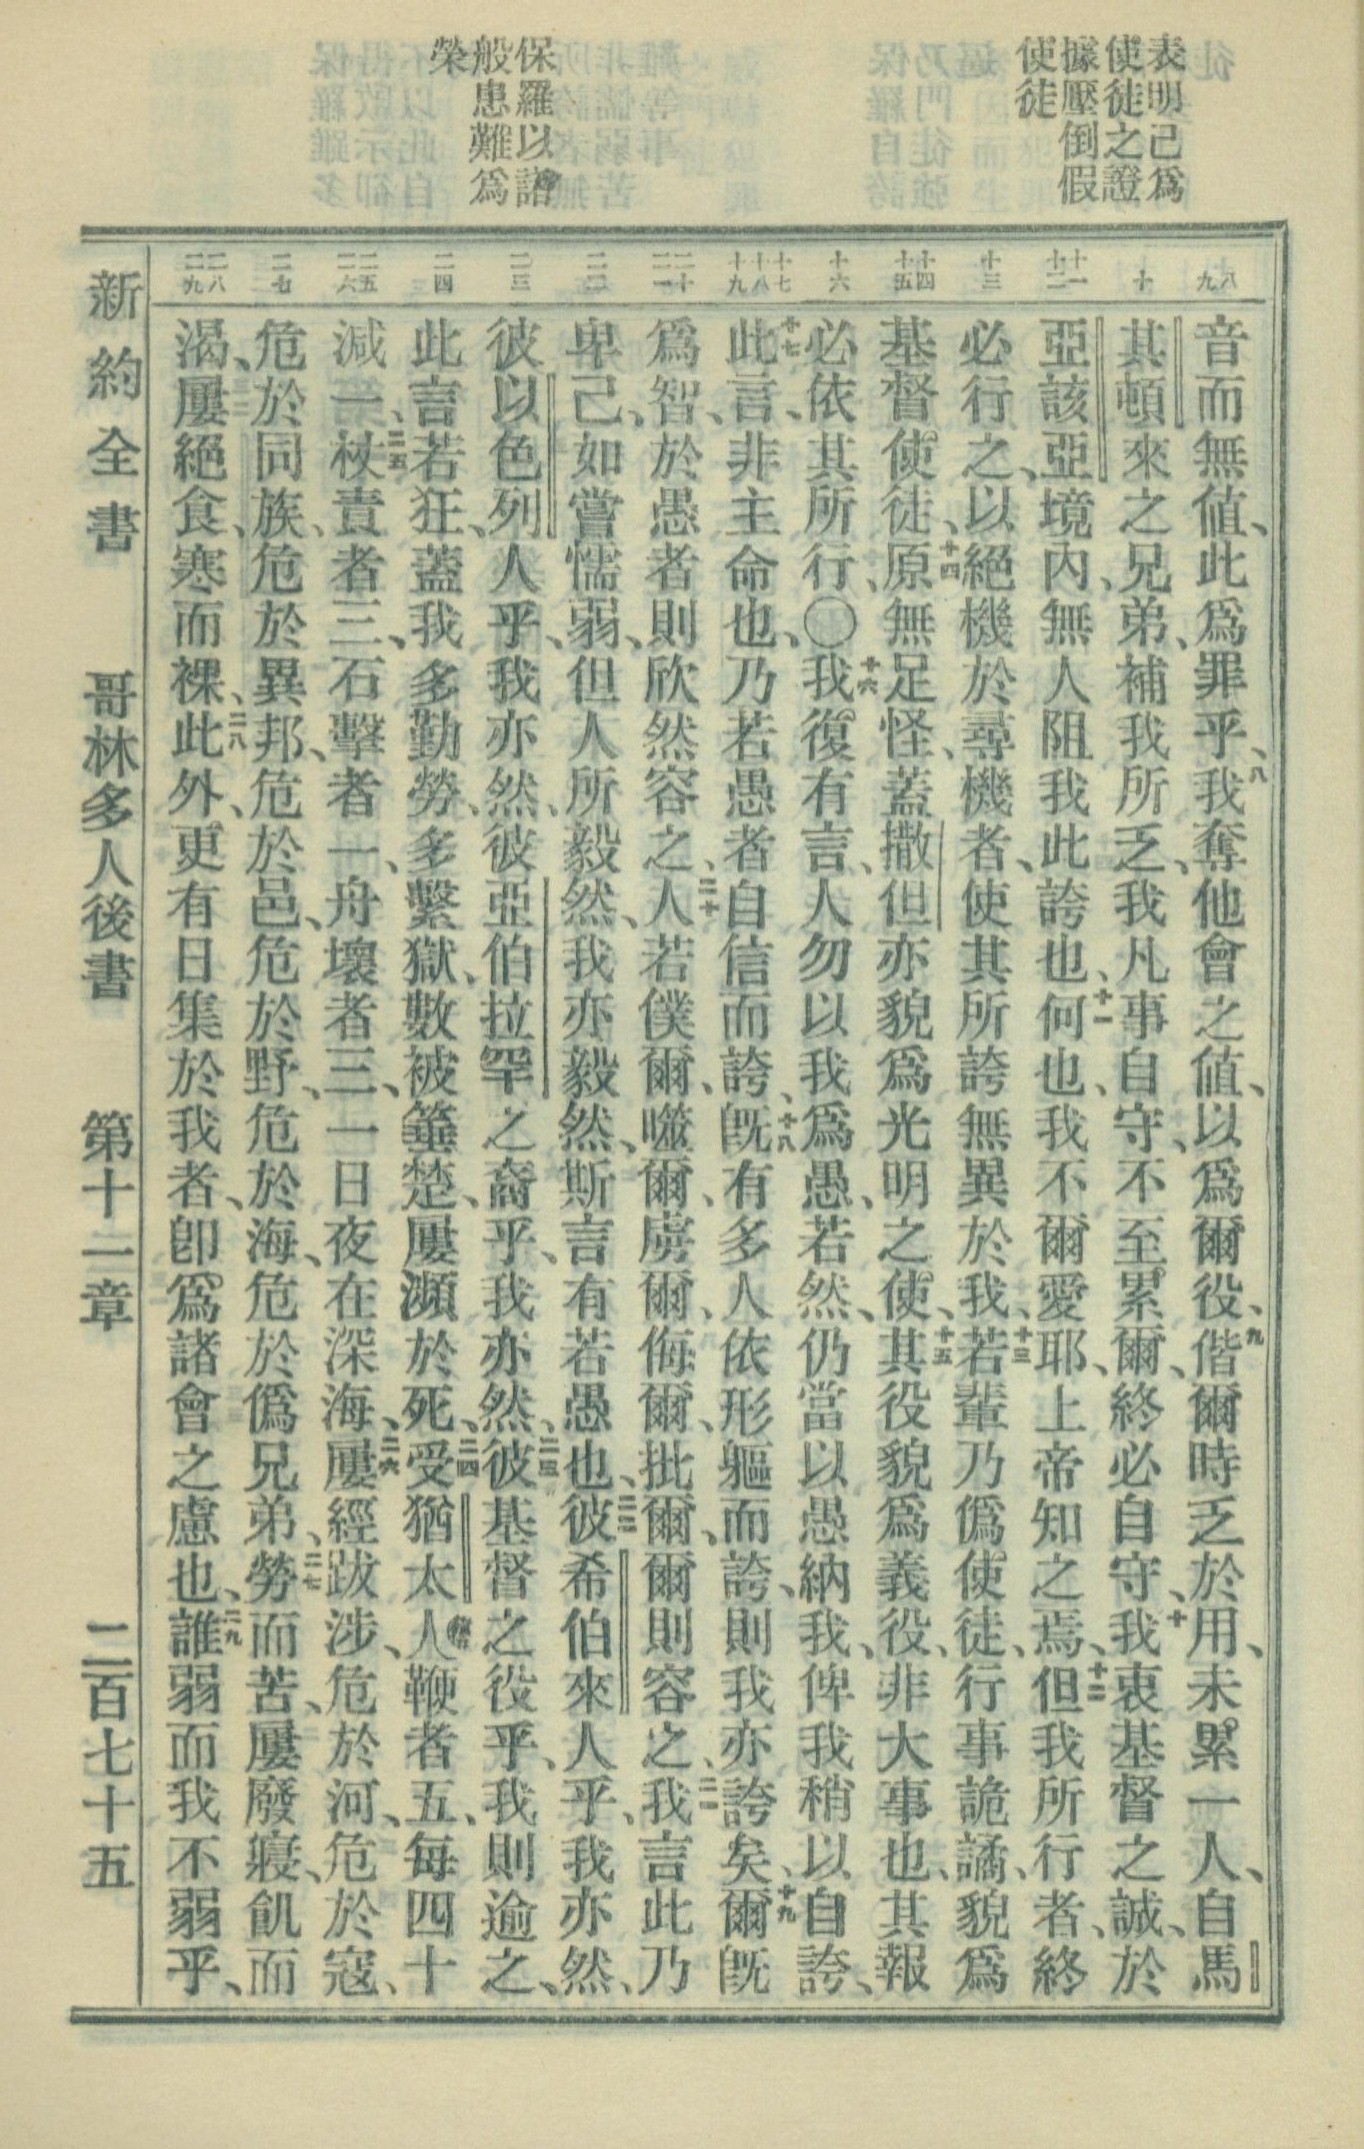 表明己爲
使徒之證
據壓倒假
使徒
保羅以諸
般患難爲
榮
八 九
十
十一 十二
十三
十四 十五
十六
十七 十八 十九
二十 二一
二二
二三
二四
二五 二六
二七
二八 二九
音而無値、此爲罪乎、八我奪他會之値、以爲爾役、九偕爾時乏於用、未累一人、自馬
其頓來之兄弟、補我所乏、我凡事自守、不至累爾、終必自守、十我衷基督之誠、於
亞該亞境內、無人阻我此誇也、十一何也、我不爾愛耶、上帝知之焉、十二但我所行者、終
必行之、以絕機於尋機者、使其所誇無異於我、十三若輩乃僞使徒、行事詭譎、貌爲
基督使徒、十四原無足怪、蓋撒但亦貌爲光明之使、十五其役貌爲義役、非大事也、其報
必依其所行、〇十六我復有言、人勿以我爲愚、若然、仍當以愚納我、俾我稍以自誇、
十七此言、非主命也、乃若愚者自信而誇、十八旣有多人依形軀而誇、則我亦誇矣、十九爾旣
爲智、於愚者則欣然容之、二十人若僕爾、噬爾、虜爾、侮爾、批爾、爾則容之、二一我言此乃
卑己、如嘗懦弱、但人所毅然、我亦毅然、斯言有若愚也、二二彼希伯來人乎、我亦然、
彼以色列人乎、我亦然、彼亞伯拉罕之裔乎、我亦然、二三彼基督之役乎、我則逾之、
此言若狂、蓋我多勤勞、多繫獄、數被箠楚、屢瀕於死、二四受猶太人鞭者五、每四十
減一、二五杖責者三、石擊者一、舟壞者三、一日夜在深海、二六屢經跋涉、危於河、危於寇、
危於同族、危於異邦、危於邑、危於野、危於海、危於僞兄弟、二七勞而苦、屢廢寢、飢而
渴、屢絕食、寒而裸、二八此外、更有日集於我者、卽爲諸會之慮也、二九誰弱而我不弱乎、
新約全書　哥林多人後書　第十一章　二百七十五